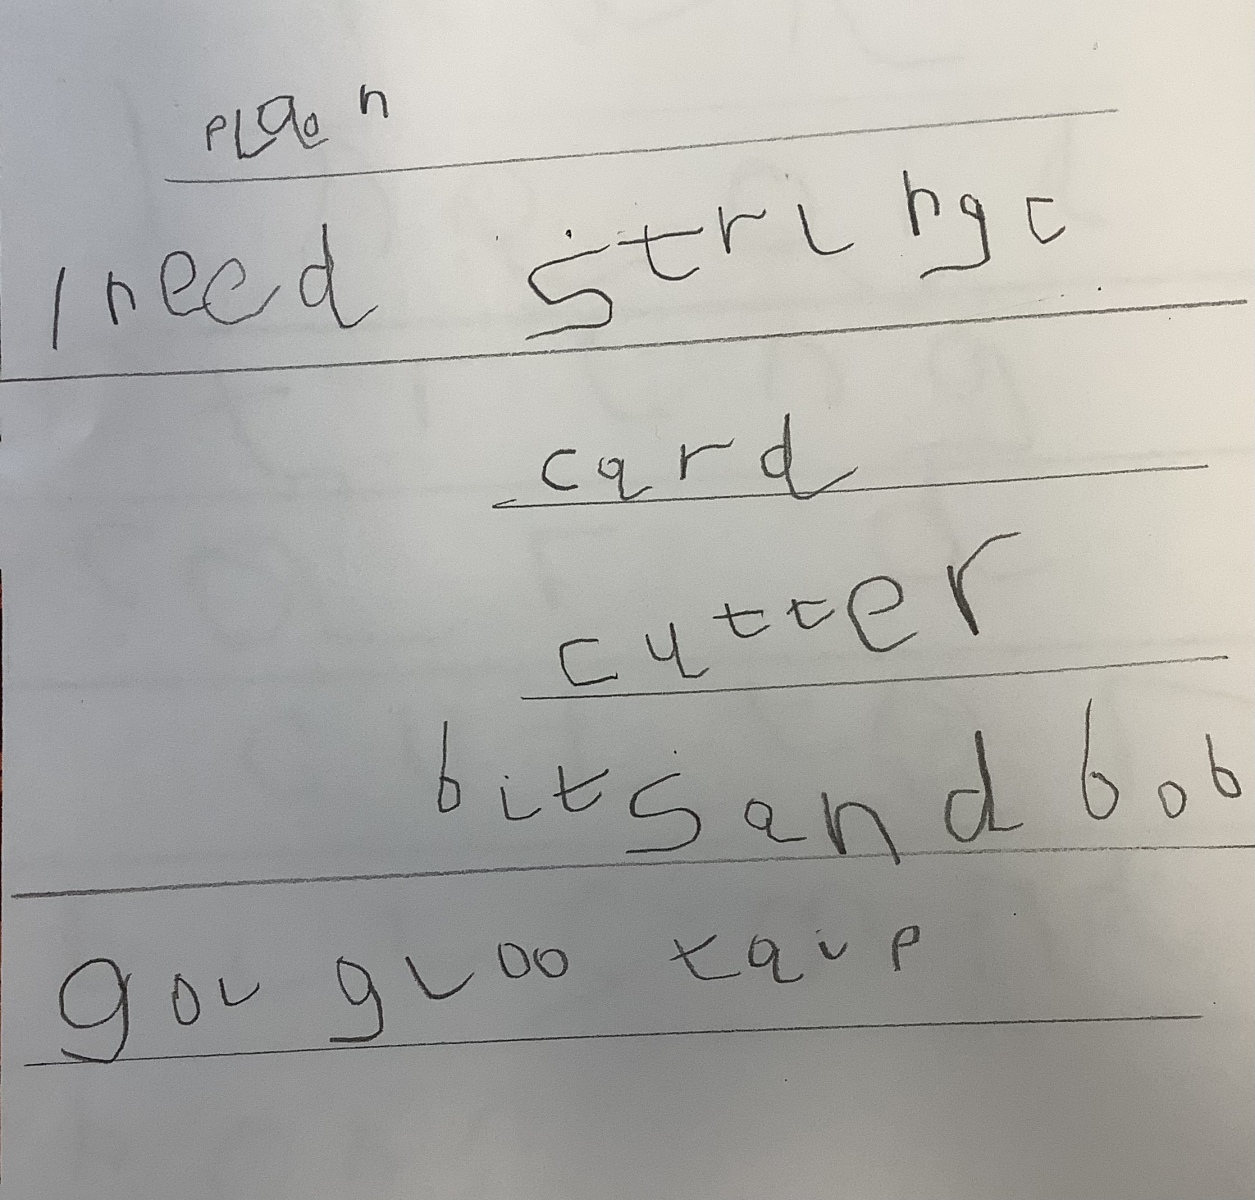 plaon
I need stringc
card
cutter
bits and bob
gol gloo taip